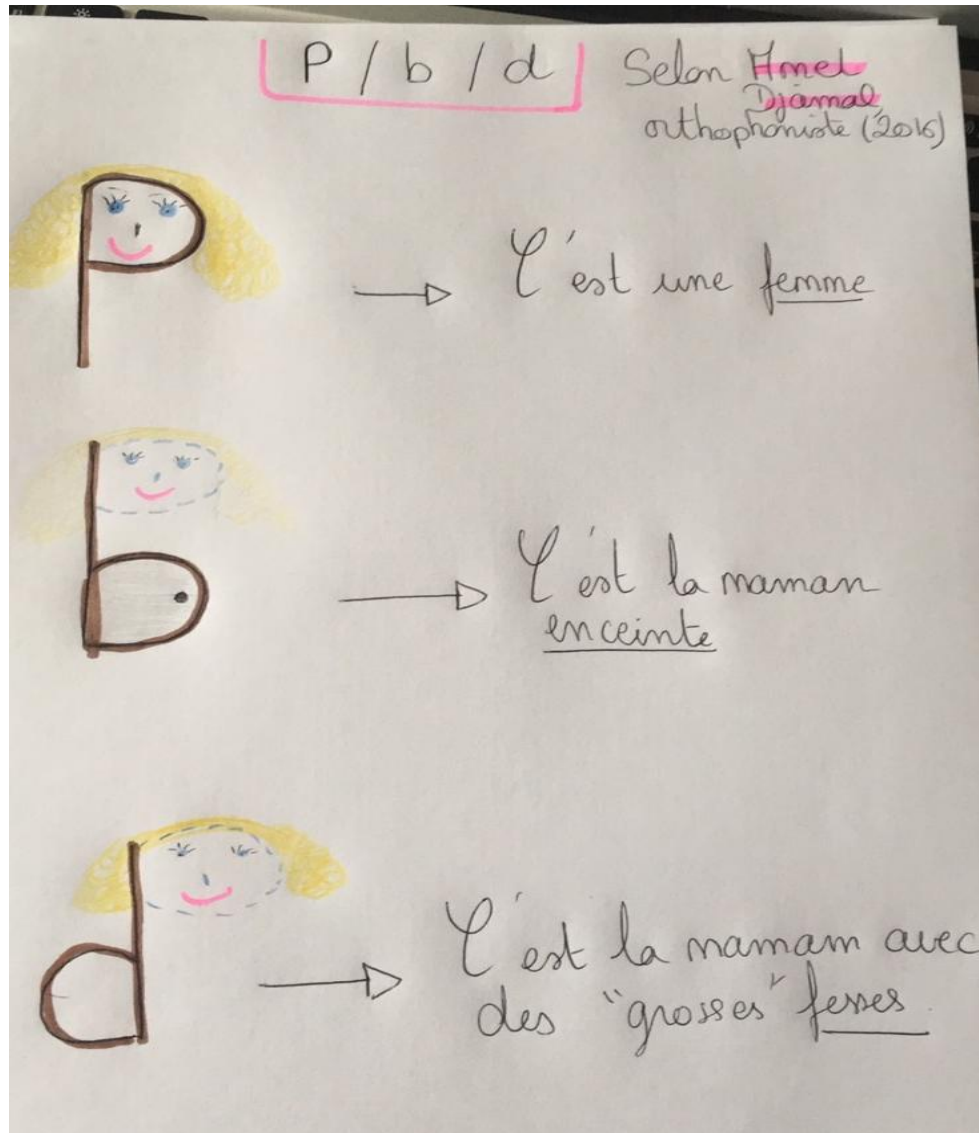 P / b / d
Selon Amel
Djamal,
orthophoniste (2016)
p
C'est une femme
b
C'est la maman
enceinte
d
C'est la mamam avec
des "grosses" fesses.